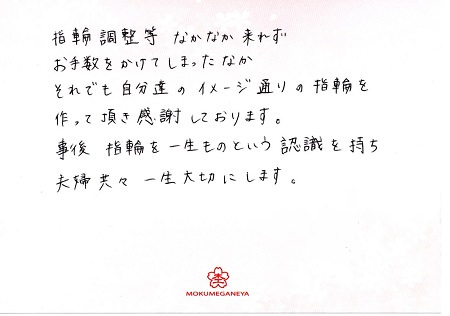 指輪調整等 なかなか来れず
お手数をかけてしまったなか
それでも自分達のイメージ通りの指輪を
作って頂き感謝しております。
事後 指輪を一生ものという認識を持ち
夫婦共々 一生大切にします。
MOKUMEGANEYA